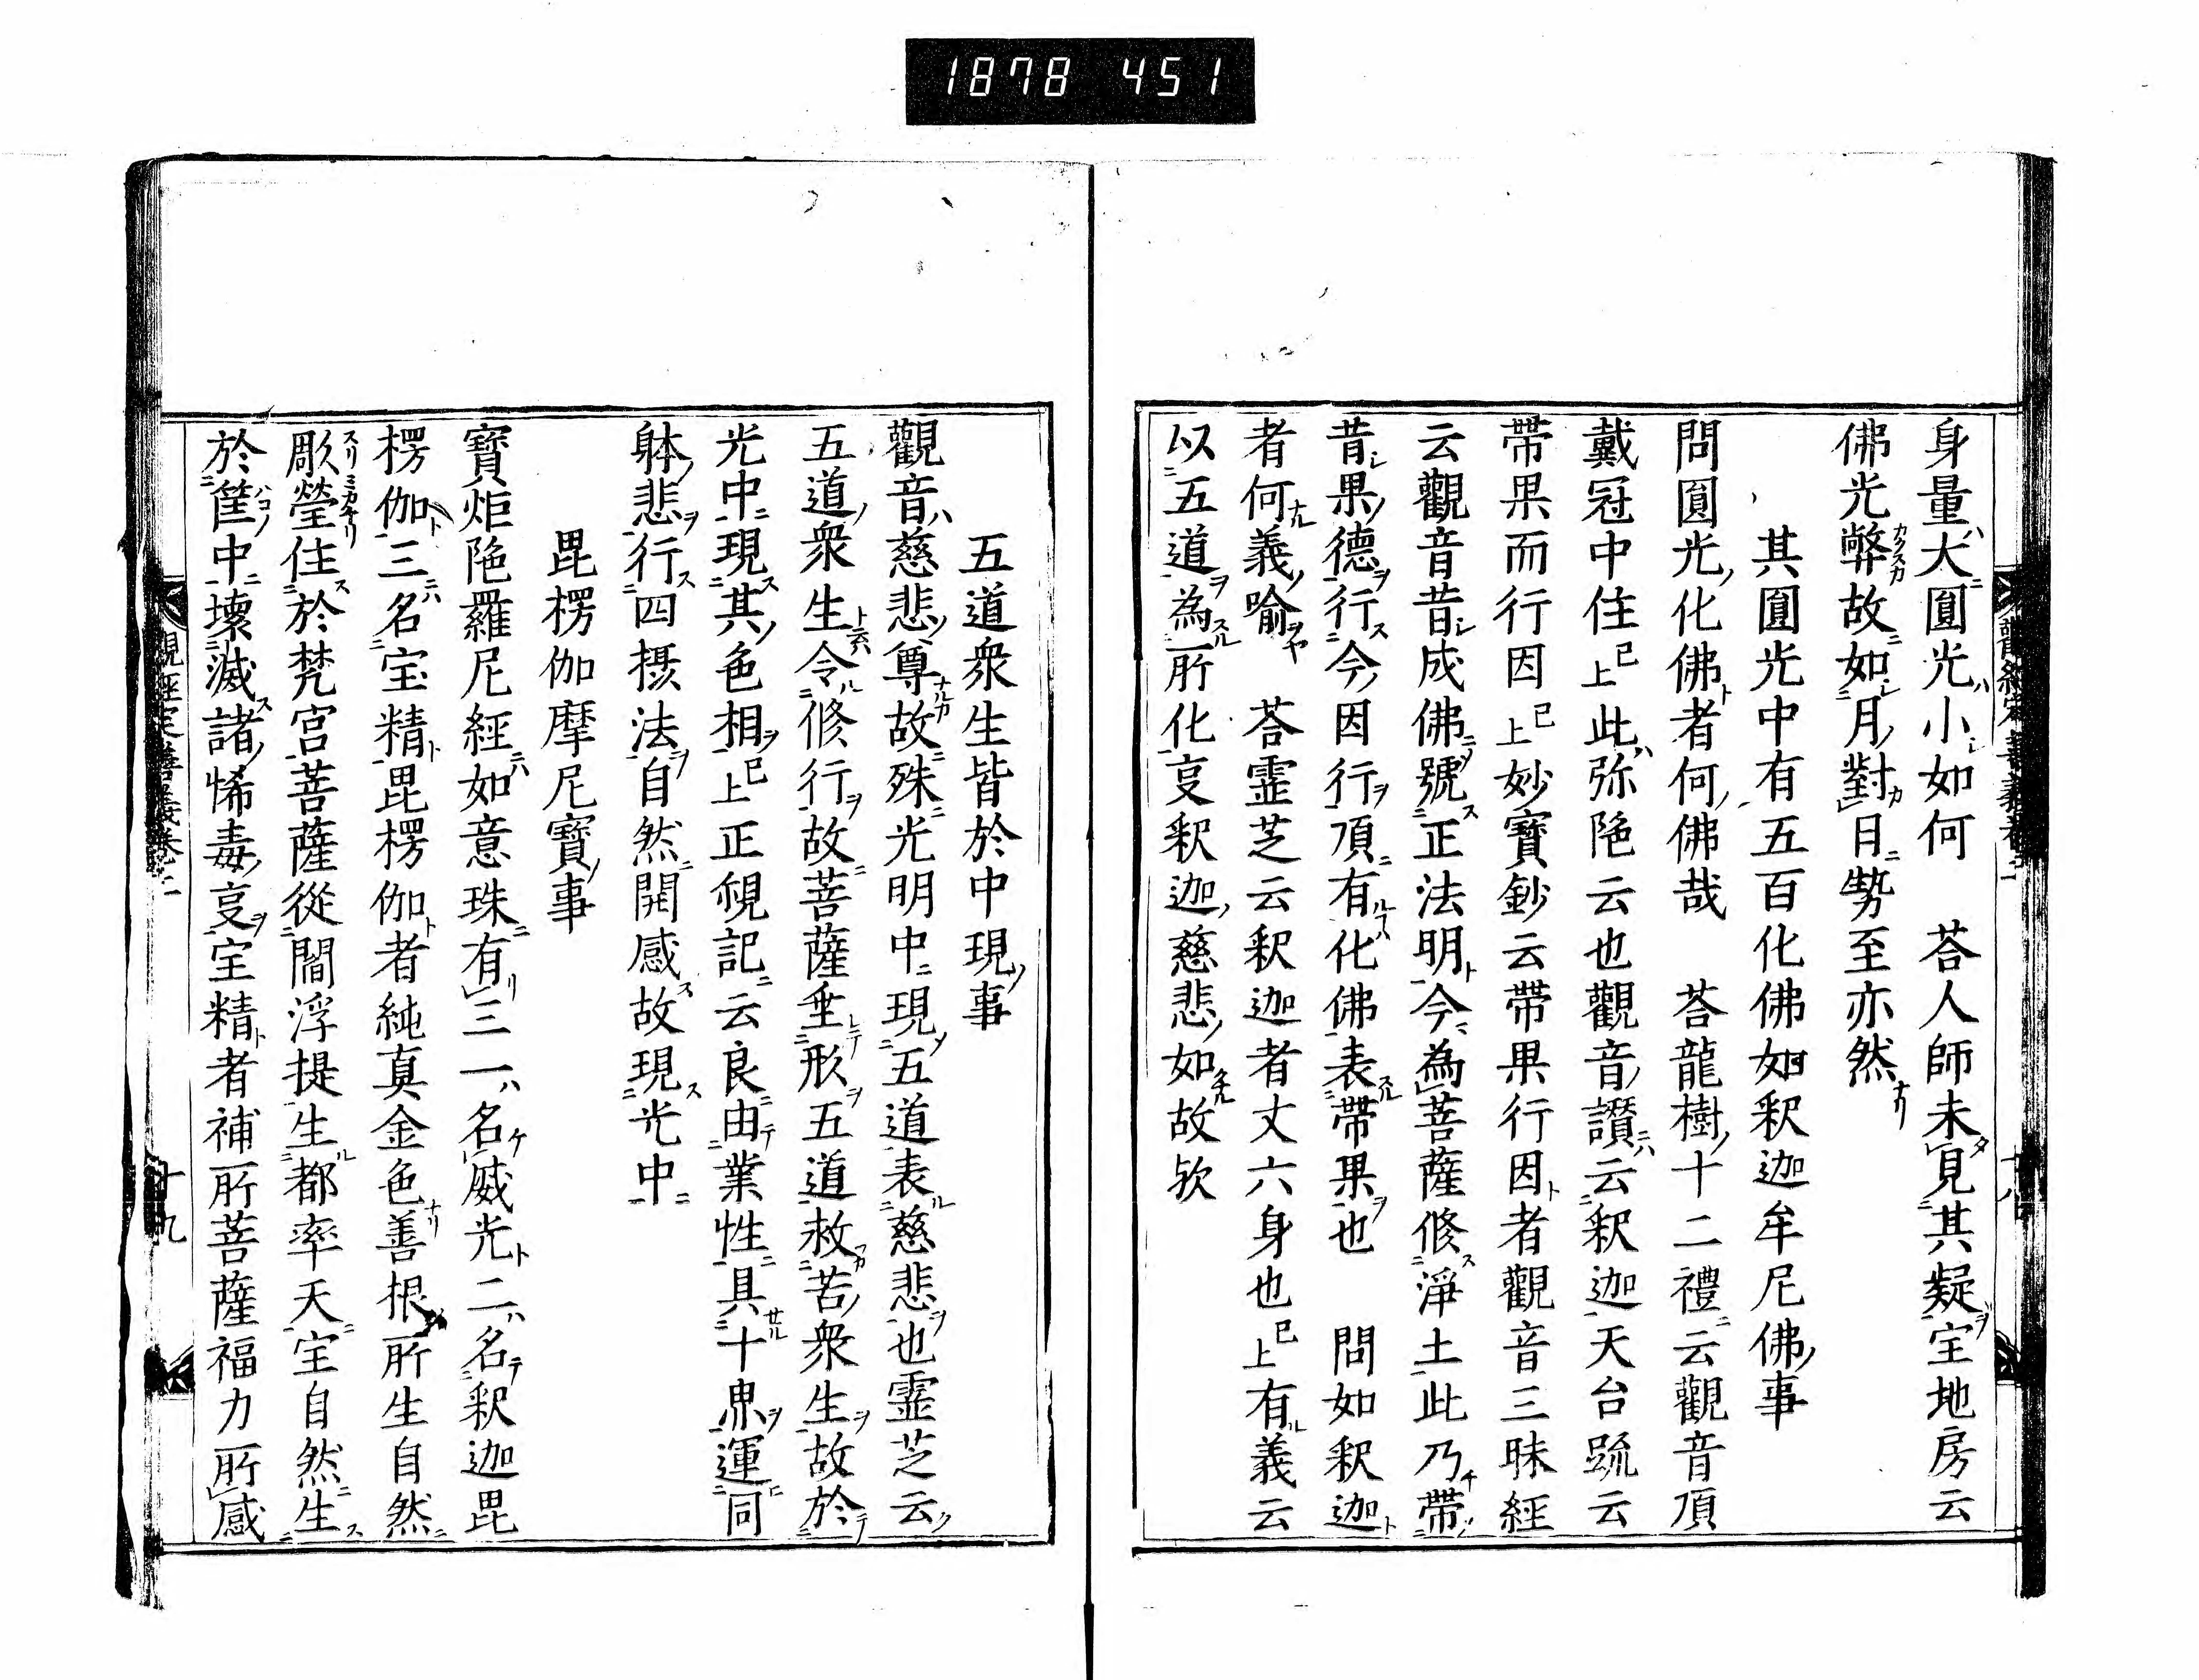 1878 451
身量大圓光小如何　荅人師未見其疑宝地房云
佛光弊故如月對日勢至亦然
其圓光中有五百化佛如釈迦牟尼佛事
問圓光化佛者何佛哉　荅龍樹十二禮云觀音頂
戴冠中住已上此弥陁云也觀音讃云釈迦天台䟽云
帶果而行因已上妙寶鈔云帶果行因者觀音三昧經
云觀音昔成佛號正法明今為菩薩修淨土此乃帶
昔果德行今因行頂有化佛表帶果也　問如釈迦
者何義喻　荅霊芝云釈迦者丈六身也已上有義云
以五道為所化㕝釈迦慈悲如故欤
五道衆生皆於中現事
觀音慈悲尊故殊光明中現五道表慈悲也霊芝云
五道衆生令修行故菩薩垂形五道救苦衆生故於
光中現其色相已上正觀記云良由業性具十界運同
躰悲行四摂法自然開感故現光中
毘楞伽摩尼寶事
寶炬陁羅尼經如意珠有三一名威光二名釈迦毘
楞伽三名宝精毘楞伽者純真金色善根所生自然
彫瑩住於梵宮菩薩從閻浮提生都率天宝自然生
於筐中壊滅諸悕毒㕝宝精者補所菩薩福力所感
觀經定善義卷二
十九